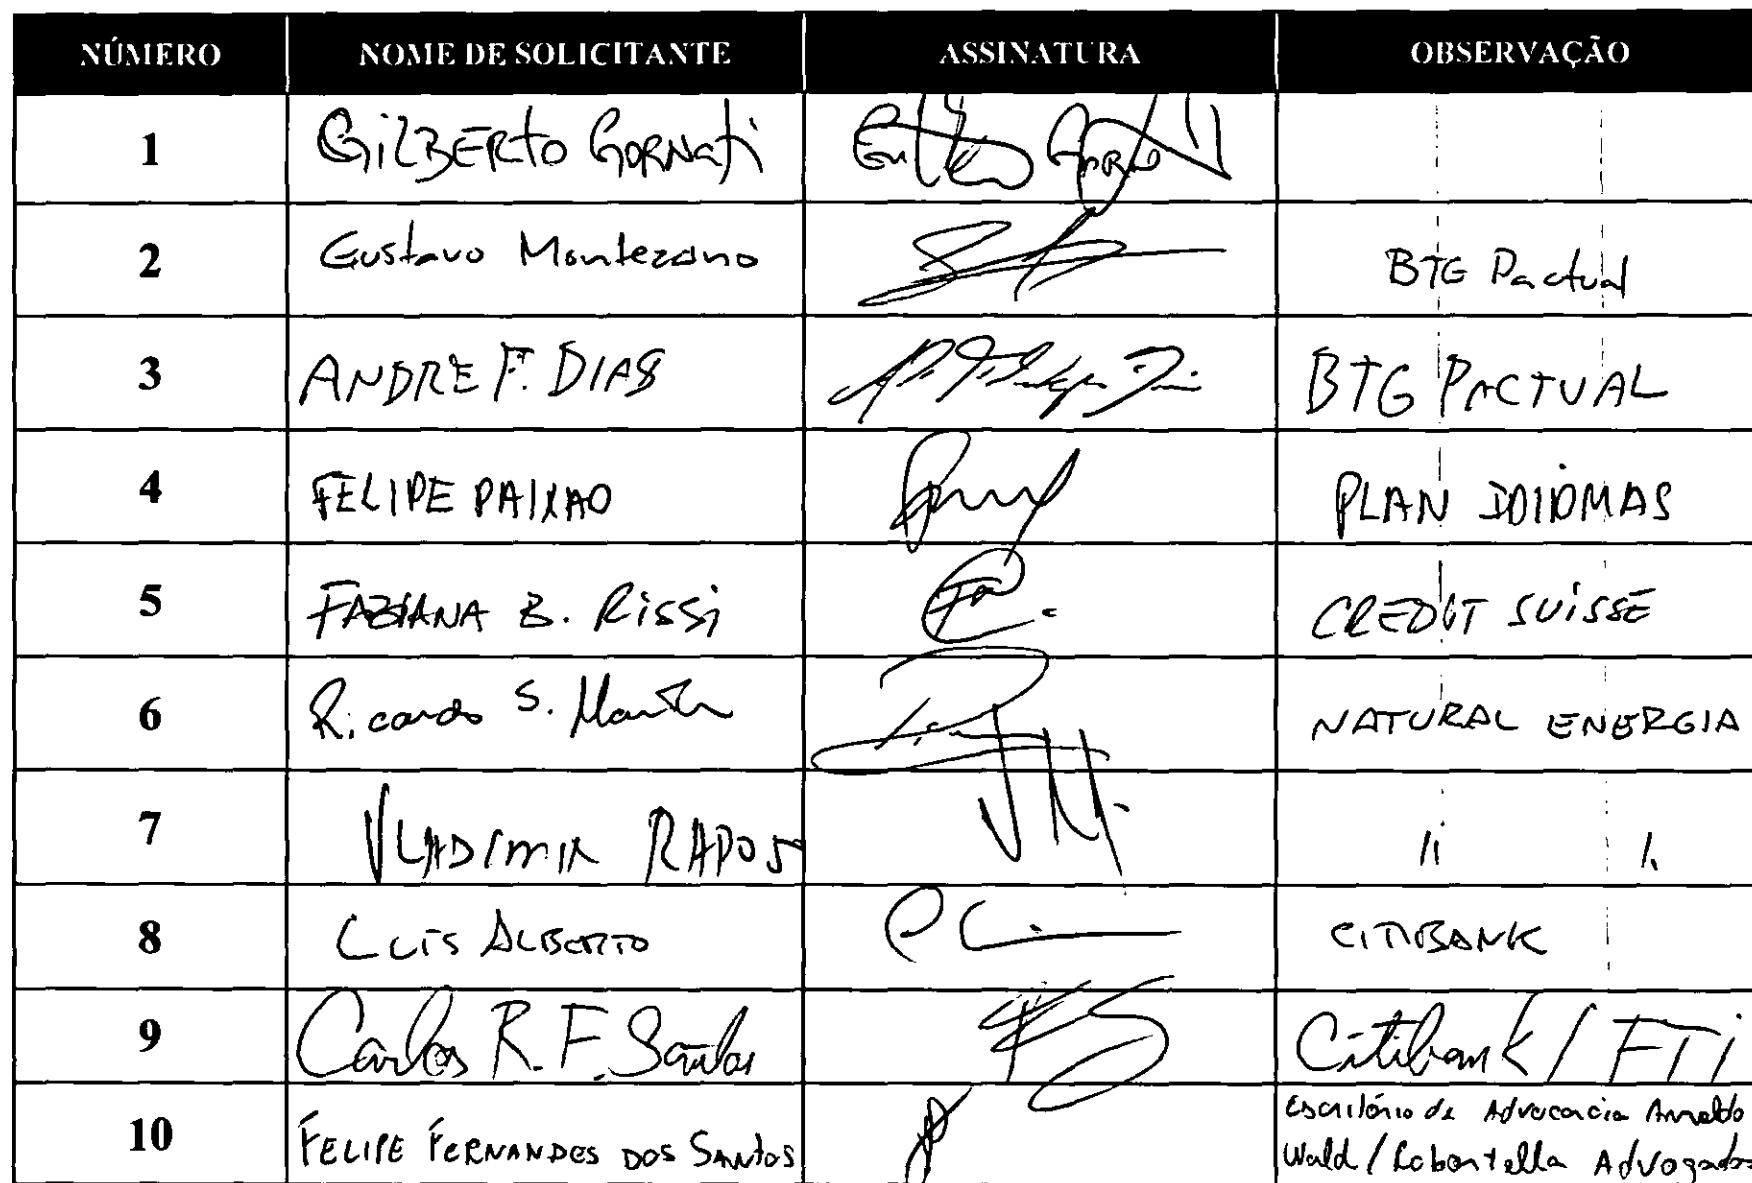 NÚMERO NOME DE SOLICITANTE ASSINATURA OBSERVAÇÃO
1 GILBERTO GORNATI
2 Gustavo Montezano BTG Pactual
3 ANDRE F. DIAS BTG PACTUAL
4 FELIPE PAIXAO PLAN IDIOMAS
5 FABIANA B. RISSI CREDIT SUISSE
6 Ricardo S. NATURAL ENERGIA
7 VLADIMIR
8 LUIS ALBERTO CITIBANK
9 Carlos R. F. Santos Citibank / FTI
10 FELIPE FERNANDES DOS SANTOS Escritório de Advocacia Arnoldo
Wald / Advogados